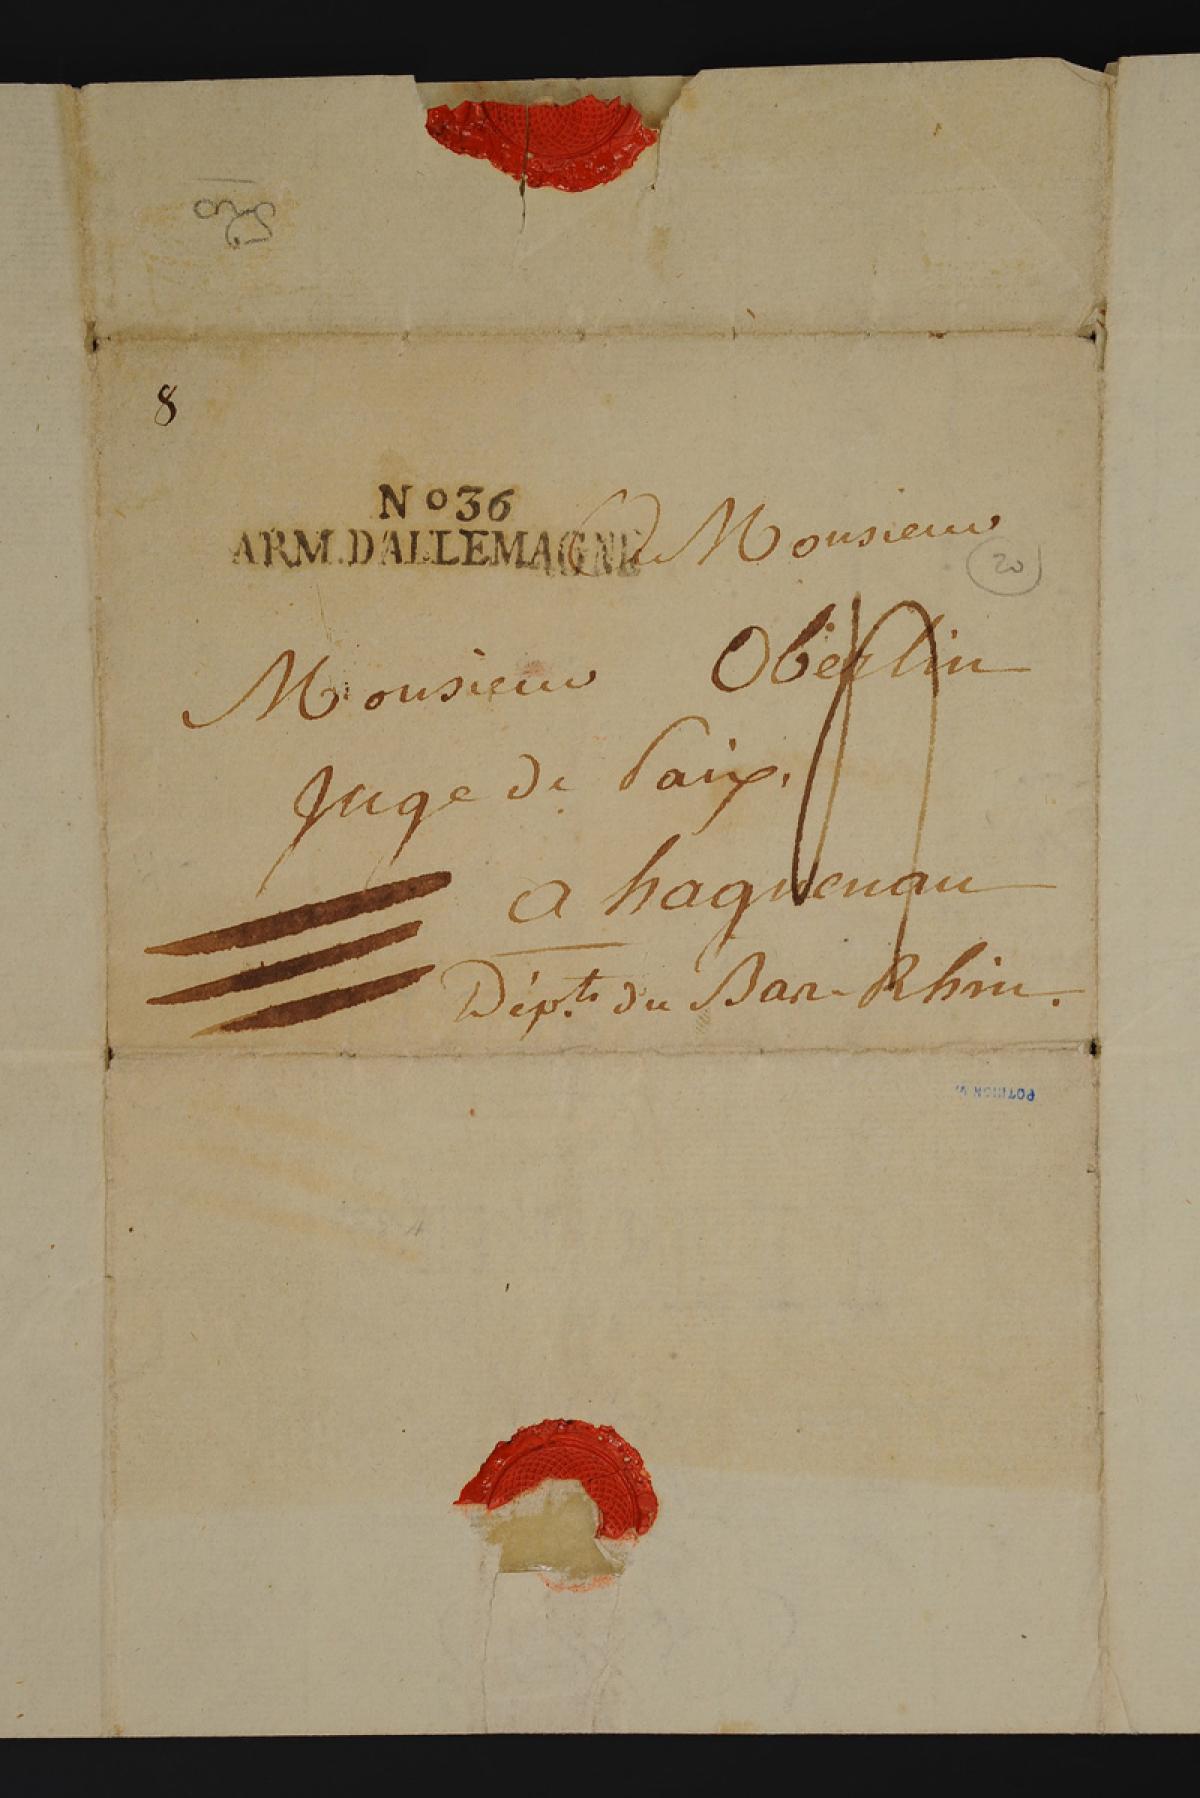 8
No 36
ARM. D'ALLEMAGNE
A Monsieur
20
Monsieur Oberlin
Juge de Paix.
a haguenau
Dépt. du Bas-Rhin.
POTHION V.